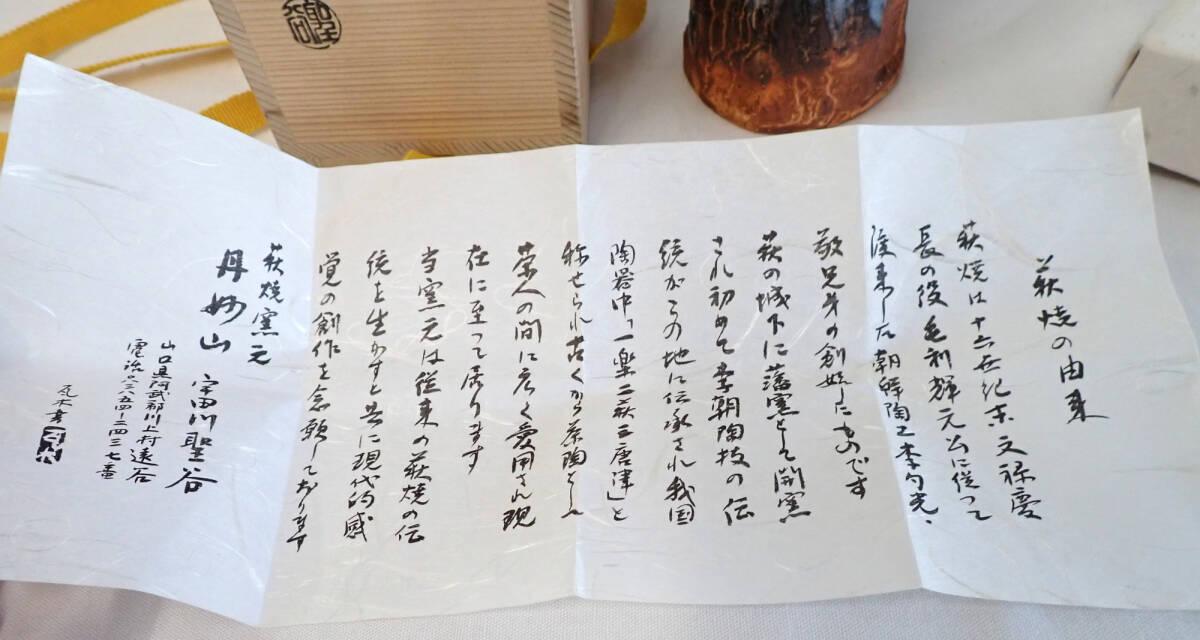 萩焼の由来
萩焼は十六世紀末文禄慶
長の役毛利輝元公に従って
渡来した朝鮮陶工李勺光、
敬兄弟の創始したものです
萩の城下に藩窯として開窯
され初めて李朝陶技の伝
統がこの地に伝承され我国
陶器中「一楽二萩三唐津」と
称せられ古くから茶陶として
茶人の間に広く愛用され現
在に至って居ります
当窯元は従来の萩焼の伝
統を生かすと共に現代的感
覚の創作を念願しております
萩焼窯元
丹妙山 富田川聖谷
山口県阿武郡川上村遠谷
電話〇八三八五四-二四三七番
聖谷